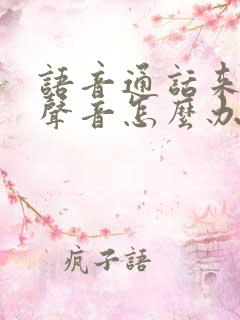 語音通話來
聲音怎麼办
疯子語